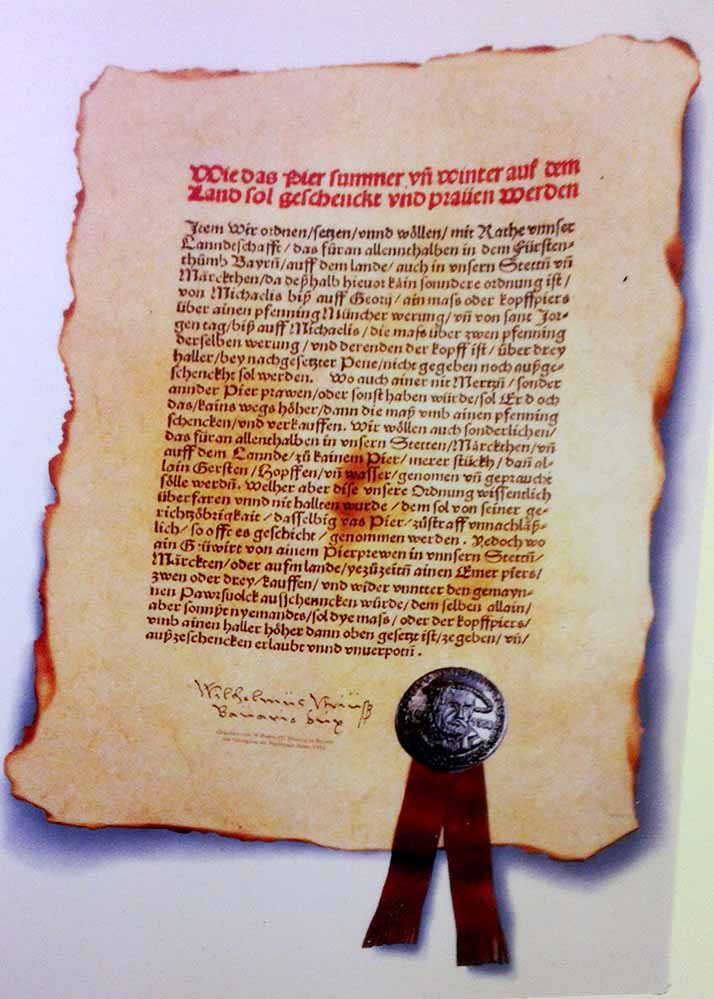 Wie das Pier summer vn̄ winter auf dem
Land sol geschenckt vnd praüen werden
Item Wir ordnen/setzen/vnnd wöllen/ mit Rathe vnnser
Lanndtschafft/das füran allennthalben in dem Fürsten-
thůmb Bayrn̄/auff dem lande/auch in vnsern Stettn̄ vn̄
Märckthen/da deßhalb hieuor kain sonndere ordnung ist/
von Michaelis biß auff Georij/ain mass oder kopffpiers
über ainen pfenning Müncher werung/vn̄ von sant Jor-
gen tag/biß auff Michaelis/die mass über zwen pfenning
derselben werung/vnd derenden der kopff ist/über drey
haller/bey nachgesetzter Pene/nicht gegeben noch außge-
schenckht sol werden. Wo auch ainer nit Mertzn̄/sonder
annder Pier prawen/oder sonst haben würde/sol Er d och
das/kains wegs höher/dann die maß vmb ainen pfenning
schencken/vnd verkauffen. Wir wöllen auch sonderlichen/
das füran allenthalben in vnsern Stetten/Märckthen/vn̄
auff dem Lannde/zů kainem Pier/merer stückh/dan̄ al-
lain Gersten/Hopffen/vn̄ wasser/genomen vn̄ gepraucht
sölle werdn̄. Welher aber dise vnsere Ordnung wissentlich
überfaren vnnd nit hallten wurde/dem sol von seiner ge-
richtzöbrigkait/dasselbig vas Pier/zůstraff vnnachläß-
lich/so offt es geschicht/genommen werden. Yedoch wo
ain G üwirt von ainem Pierprewen in vnnsern Stettn̄/
Märckten/oder aufm lande/yezůzeitn̄ ainen Emer piers/
zwen oder drey/kauffen/vnd wider vnntter den gemayn-
nen Pawrsuolck ausschenncken würde/dem selben allain/
aber sonnßt nyemandts/sol dye mass/oder der kopffpiers/
vmb ainen haller höher dann oben gesetzt ist/zegeben/vn̄/
außzeschencken erlaubt vnnd vnuerpotn̄.
Wilhelmus